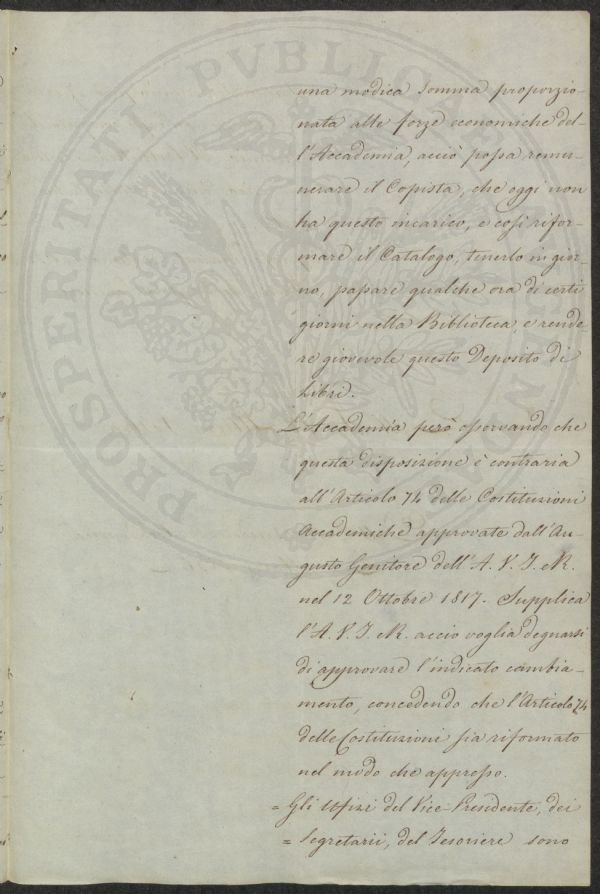 PROSPERITATI PVBLICAE
una modica somma proporzio-
nata alle forze economiche del-
l'Accademia, acciò possa remu-
nerare il Copista, che oggi non
ha questo incarico, e così rifor-
mare il Catalogo, tenerlo in gior-
no, passare qualche ora di certi
giorni nella Biblioteca e rende-
re giovevole questo Deposito di
Libri.
L'Accademia però osservando che
questa disposizione è contraria
all'Articolo 74 delle Costituzioni
Accademiche approvate dall'Au-
gusto Genitore dell'A. V. I. e R.
nel 12 Ottobre 1817. Supplica
l'A. V. I. e R. acciò voglia degnarsi
di approvare l'indicato cambia-
mento, concedendo che l'Articolo 74
delle Costituzioni sia riformato
nel modo che appresso.
= Gli Ufizi del Vice-Presidente, dei
= Segretarii, del Tesoriere sono